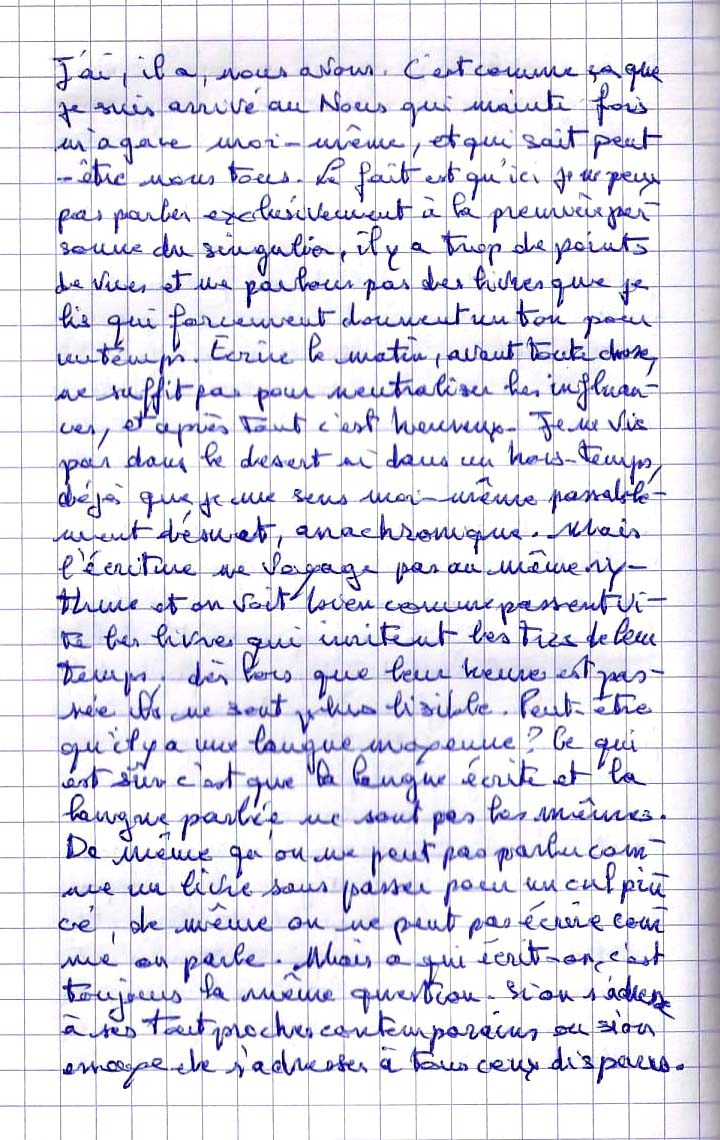 J'ai, il a, nous avons. C'est comme ça que
je suis arrivé au Nous qui mainte fois
m'agace moi-même, et qui sait peut
-être nous tous. Le fait est qu'ici je ne peux
pas parler exclusivement à la première per-
sonne du singulier, il y a trop de points
de vues et ne parlons pas des livres que je
lis qui forcement donnent un ton pour
un temps. Écrire le matin, avant toute chose,
ne suffit pas pour neutraliser les influan-
ces, et après tout c'est heureux. Je ne vis
pas dans le desert ni dans un hors-temps,
déjà que je me sens moi-même passablé-
ment désuet, anachronique. Mais
l'écriture ne voyage pas au même ry-
thme et on voit bien comme passent vi-
te les livres qui imitent les tics de leur
temps. dès lors que leur heure est pas-
sée ils ne sont plus lisible. Peut-être
qu'il y a une langue moyenne? Ce qui
est sûr c'est que la langue écrite et la
langue parlée ne sont pas les mêmes.
De même qu'on ne peut pas parler com-
me un livre sans passer pour un cul pin
cé, de même on ne peut pas écrire com
me on parle. Mais a qui écrit-on, c'est
toujours la même question. Si on s'adresse
à ses tout proches contemporains ou si on
essaye de s'adresser à tous ceux disparus.